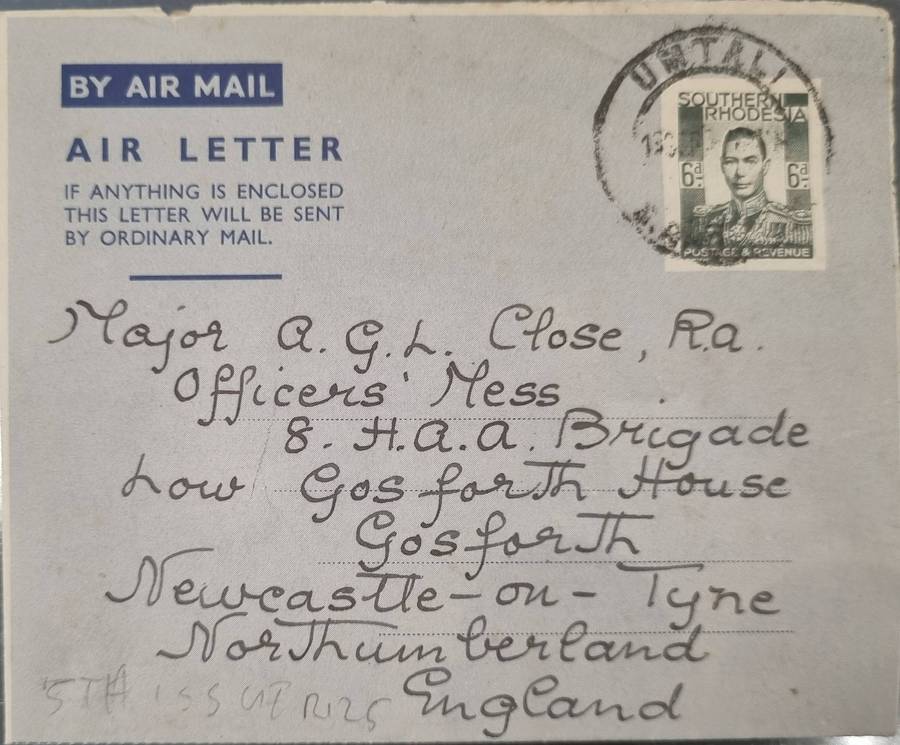 BY AIR MAIL
AIR LETTER
IF ANYTHING IS ENCLOSED
THIS LETTER WILL BE SENT
BY ORDINARY MAIL.
UMTALI
SOUTHERN
RHODESIA
6d 6d
POSTAGE & REVENUE
Major A. G. L. Close, R.a.
Officers' Mess
8. H.a.a. Brigade
Low Gosforth House
Gosforth
Newcastle-on-Tyne
Northumberland
England
5TH ISSUE R125